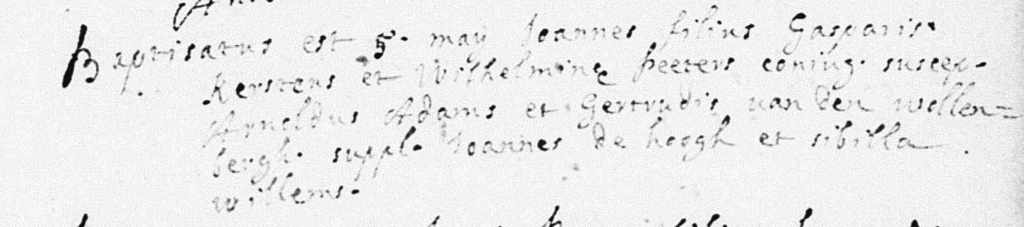 Baptisatus est 5. maÿ Joannes filius Gasparis
Kerstens et Wilhelminę Peeters coniug. suscep.
Arnoldus Adams et Gertrudis van den wollen=
bergh. suppl. Joannes de hoogh et sibilla
willems.